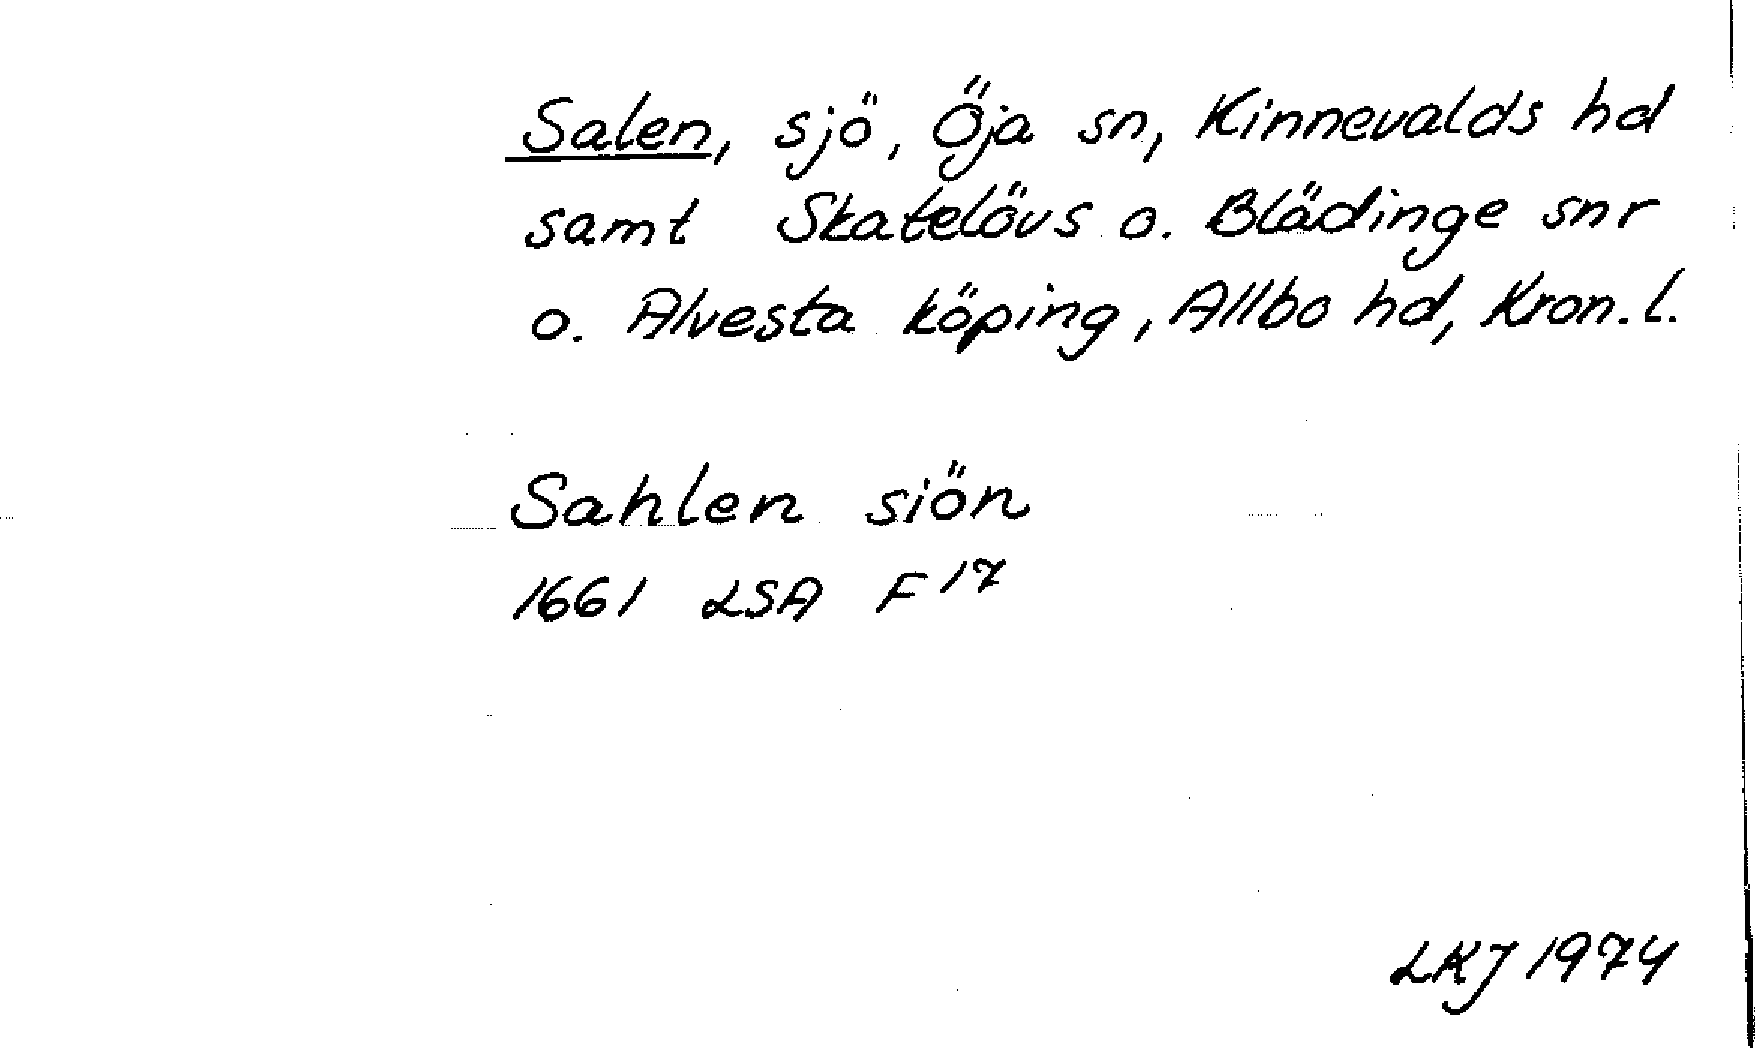 Salen, sjö, Öja sn, Kinnevalds hd
samt Skatelövs o. Blädinge snr
o. Alvesta köping, Allbo hd, Kron. l.
Sahlen siön
1661 LSA F 17
LKJ 1974